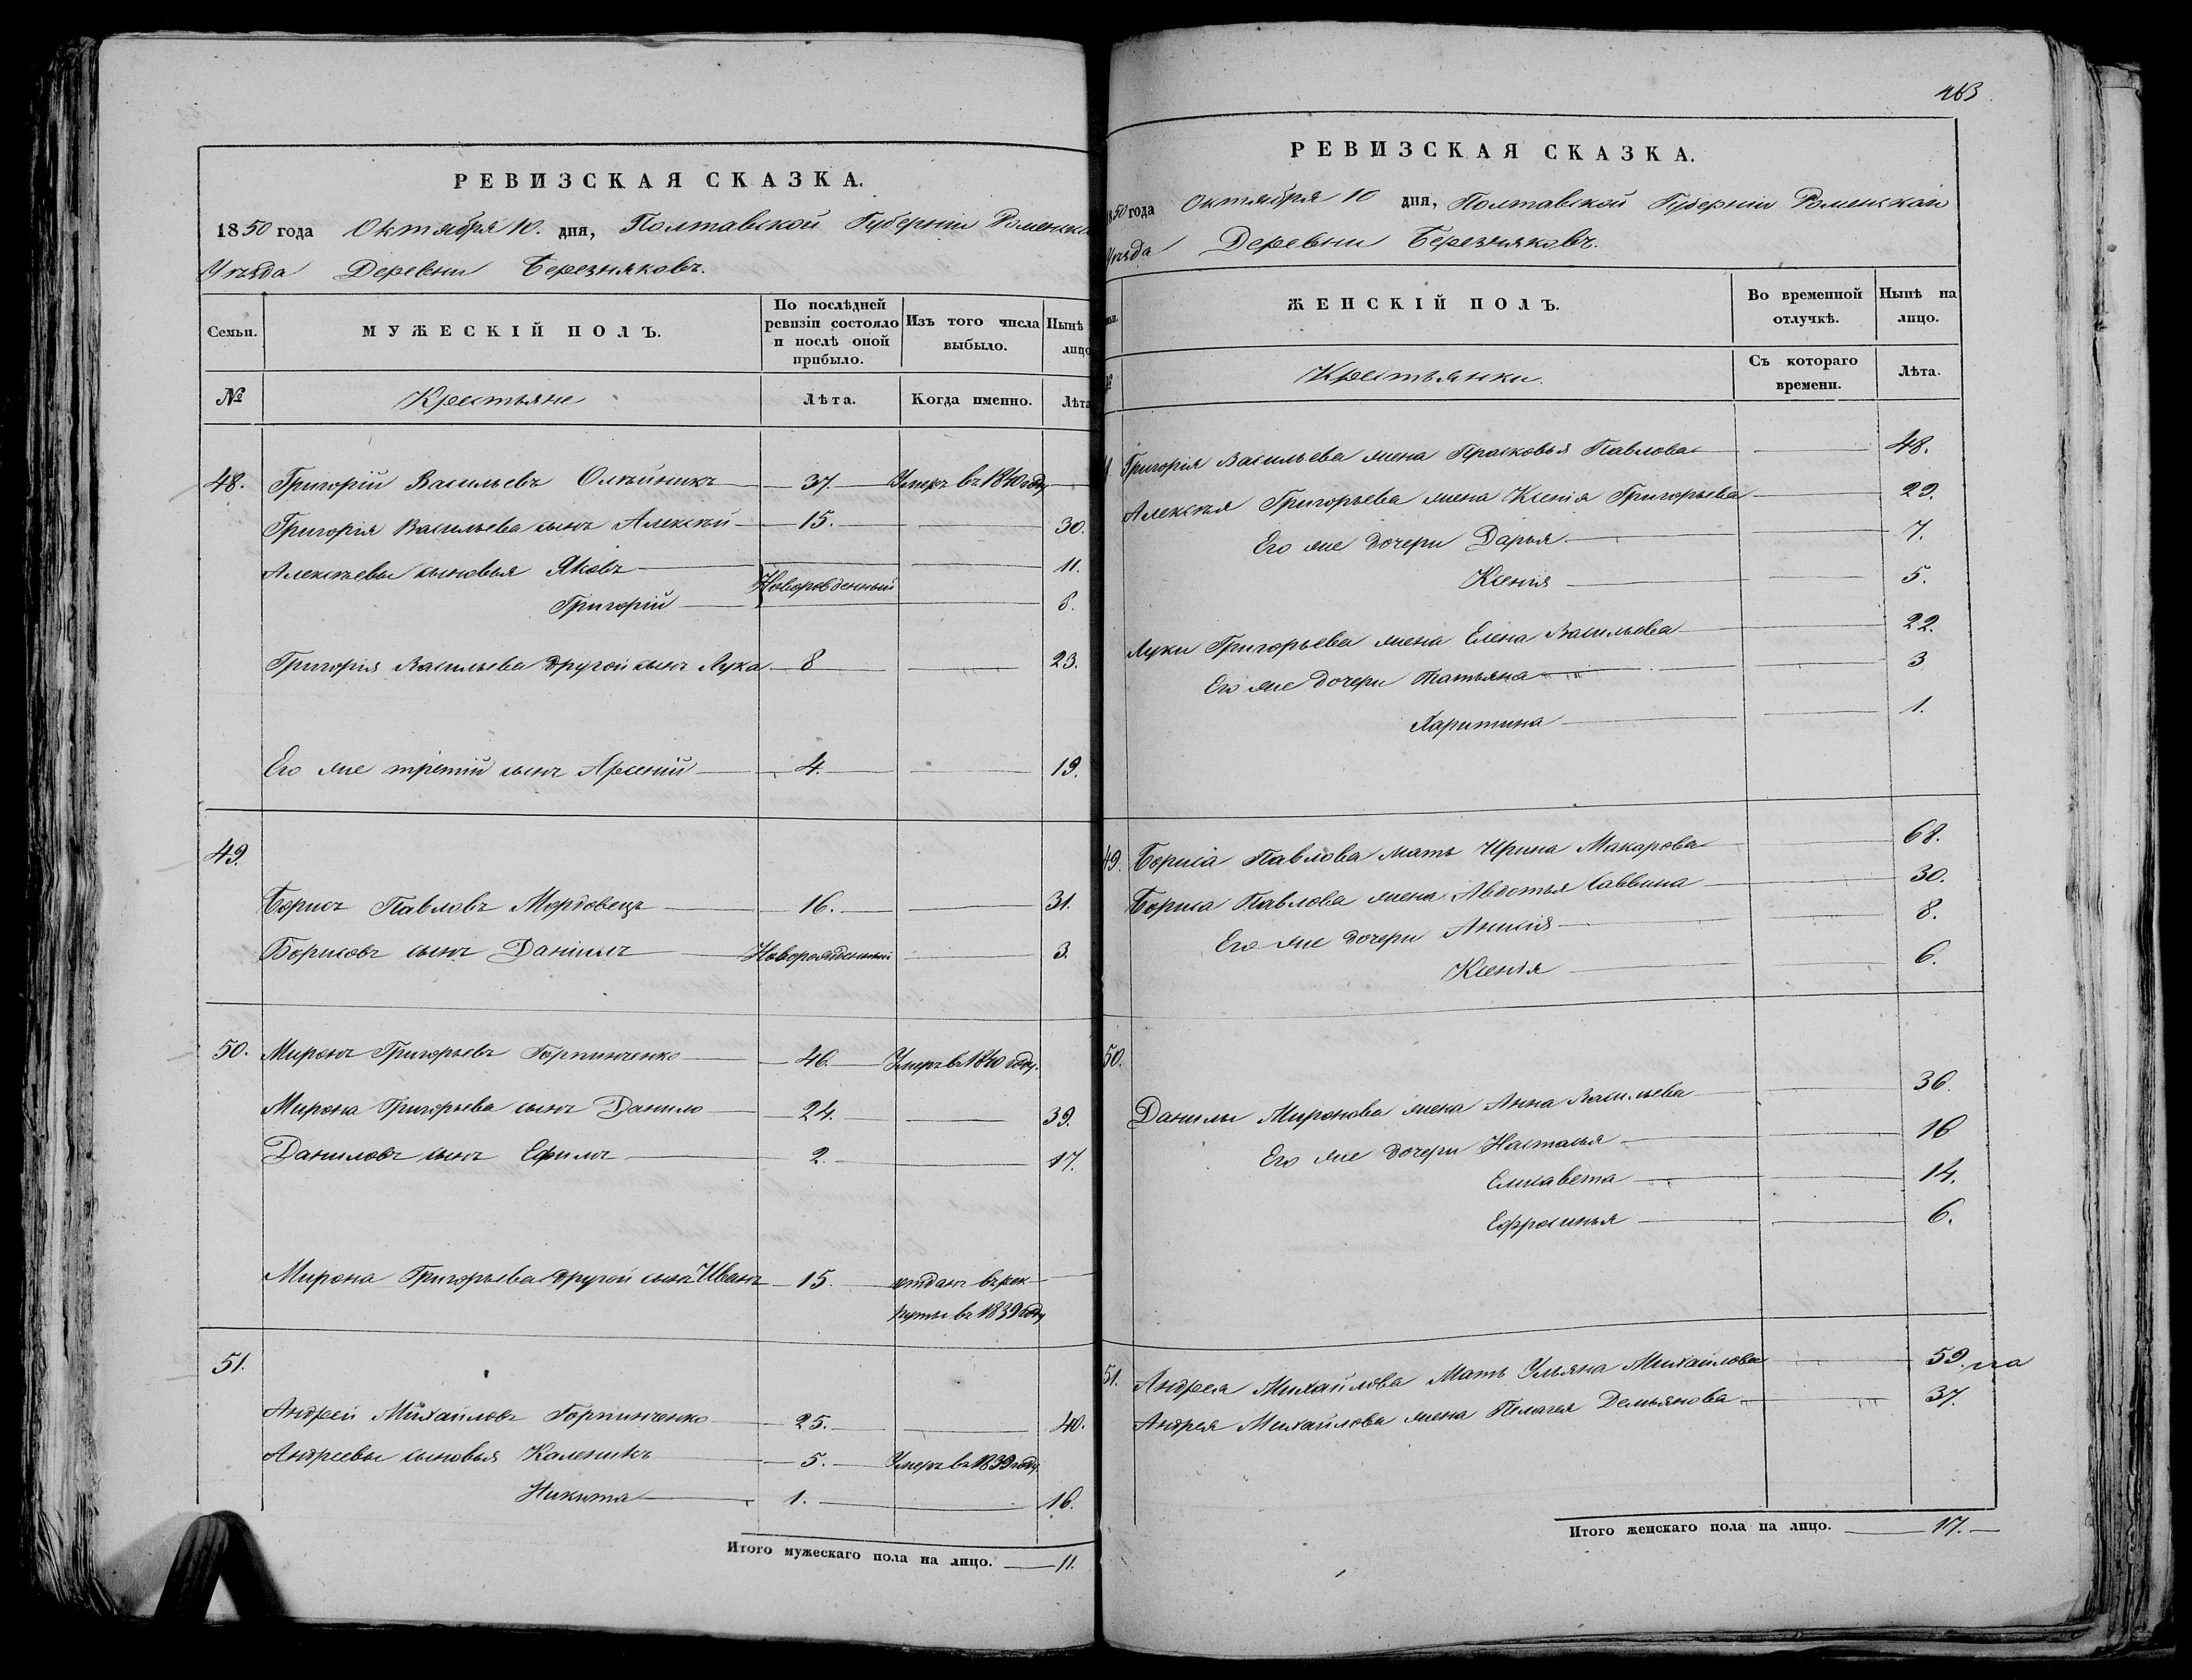 РЕВИЗСКАЯ СКАЗКА.
1850 года Октября 10. дня, Полтавской Губерніи Роменска
Уѣзда Деревни Березняковъ.
Семьи. МУЖЕСКІЙ ПОЛЪ. По послѣдней ревизіи состояло и послѣ оной прибыло. Изъ того числа выбыло. Нынѣ лицо
№ Крестьяне Лѣта. Когда именно. Лѣта
48. Григорій Васильевъ Олѣйникъ 37. Умеръ въ 1840 году
Григорія Васильева сынъ Алексѣй 15. 30.
Алексѣевы сыновья Яковъ Новорожденный 11.
Григорій 8.
Григорія Васильева другой сынъ Лука 8 23.
Его же третій сынъ Арсеній 4. 19.
49.
Борисъ Павловъ Мордовецъ 16. 31.
Борисовъ сынъ Даніилъ Новорожденный 3.
50. Миронъ Григорьевъ Горпинченко 46. Умеръ въ 1840 году.
Мирона Григорьева сынъ Данило 24. 39.
Даниловъ сынъ Ефимъ 2. 17.
Мирона Григорьева другой сынъ Иванъ 15. отданъ въ рек
руты въ 1839 году
51.
Андрей Михайловъ Горпинченко 25. 40.
Андреевы сыновья Каленикъ 5. Умеръ въ 1839 году
Никита 1. 16.
Итого мужескаго пола на лицо. 11.
463
РЕВИЗСКАЯ СКАЗКА.
1850 года Октября 10 дня, Полтавской Губерніи Роменскаго
Уѣзда Деревни Березняковъ.
ЖЕНСКІЙ ПОЛЪ. Во временной отлучкѣ. Нынѣ на лицо.
№ Крестьянки. Съ котораго времени. Лѣта.
Григорія Васильева жена Прасковья Павлова 48.
Алексѣя Григорьева жена Ксенія Григорьева 29.
Его же дочери Дарья 7.
Ксенія 5.
Луки Григорьева жена Елена Васильева 22.
Его же дочери Татьяна 3
Харитина 1.
49. Бориса Павлова мать Ирина Макарова 68.
Бориса Павлова жена Авдотья Саввина 30.
Его же дочери Анисія 8.
Ксенія 6.
50.
Данилы Миронова жена Анна Васильева 36.
Его же дочери Настасья 16
Елисавета 14.
Ефросинья 6.
51. Андрея Михайлова Мать Ульяна Михайлова 59.
Андрея Михайлова жена Пелагея Демьянова 37.
Итого женскаго пола на лицо. 17.